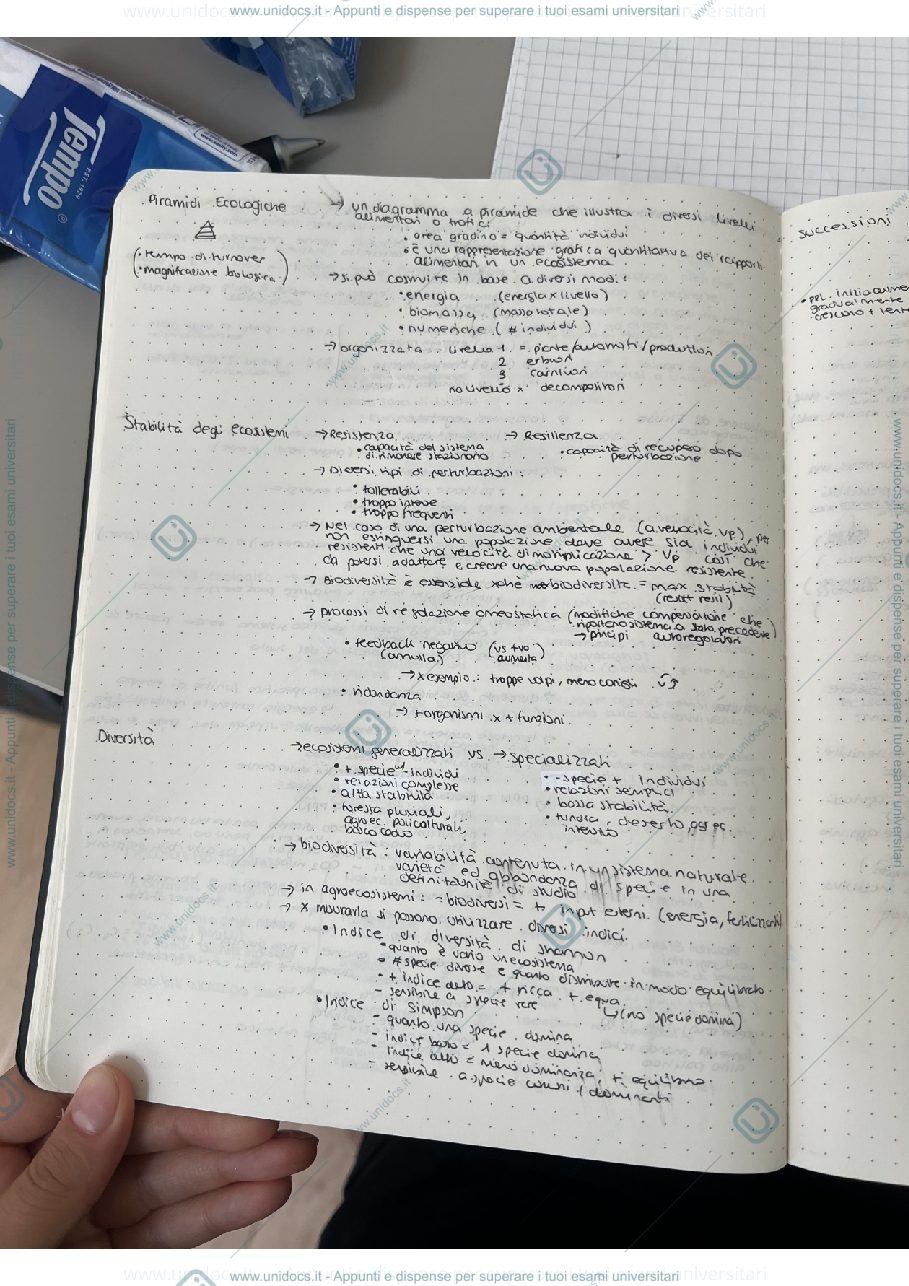 www.unidocs.it - Appunti e dispense per superare i tuoi esami universitari
Tempo
Piramidi Ecologiche → un diagramma a piramide che illustra i diversi livelli
alimentari o trofici
• area gradino = quantità individui
• è una rappresentazione grafica quantitativa dei rapporti
alimentari in un ecosistema
(• tempo di turnover
• magnificazione biologica)
→ si può costruire in base a diversi modi:
• energia (energia x livello)
• biomassa (massa totale)
• numeriche (# individui)
→ organizzata livello 1 = piante/autotrofi/produttori
2 erbivori
3 carnivori
no livello x decompositori
Stabilità degli ecosistemi → Resistenza → Resilienza
• capacità del sistema
di rimanere stazionario
• capacità di recupero dopo
perturbazione
→ Diversi tipi di perturbazioni:
• tollerabili
• troppo intense
• troppo frequenti
→ Nel caso di una perturbazione ambientale (a velocità vp), per
non estinguersi una popolazione deve avere sia individui
resistenti che una velocità di moltiplicazione > vp così che
da potersi adattare e creare una nuova popolazione resistente.
→ Biodiversità è essenziale xché max biodiversità = max stabilità
(resist resil)
→ processi di regolazione omeostatica (modifiche compensatorie che
riportano sistema a stato precedente)
→ principi autoregolatori
• feedback negativo (vs +vo)
(annulla) aumenta
→ x esempio: troppe volpi, meno conigli
• ridondanza
→ + organismi x + funzioni
Diversità
→ ecosistemi generalizzati vs → specializzati
• + specie - individui
• relazioni complesse
• alta stabilità
• foresta pluviali,
agroec. policolturali,
bosco ceduo
• - specie + individui
• relazioni semplici
• bassa stabilità
• tundra, deserto, ag ec.
intensivo
→ biodiversità: variabilità contenuta in un sistema naturale.
varietà ed abbondanza di specie in una
definita unità di studio
→ in agroecosistemi: - biodiversi = + input esterni (energia, fertilizzanti)
→ x misurarla si possono utilizzare diversi indici.
• Indice di diversità di shannon
• quanto è vario un ecosistema
• # specie diverse e quanto distribuite in modo equilibrato
• + indice alto = + ricca + equa
↳ (no specie domina)
- sensibile a specie rare
• Indice di Simpson
- quanto una specie domina
- indice basso = 1 specie domina
- indice alto = meno dominanza, + equilibrio
- sensibile a specie comuni / dominanti
successioni
gradualmente
www.unidocs.it - Appunti e dispense per superare i tuoi esami universitari